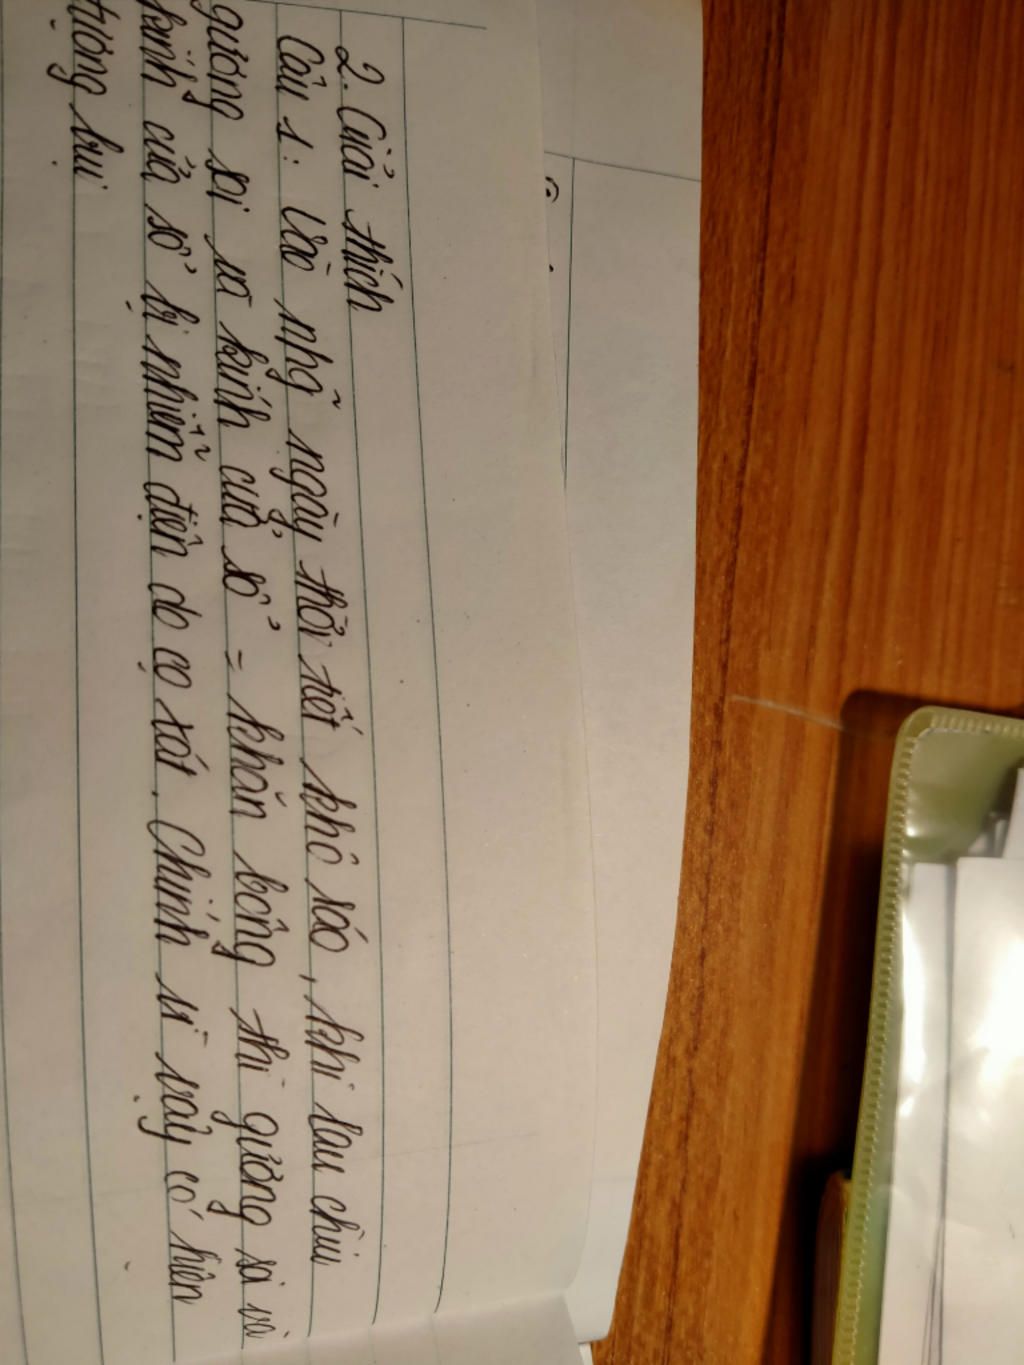 2. Giải thích
Câu 1: Vào nhg~ ngày thời tiết khô ráo, khi lau chùi
gương soi và kính cửa sổ = khăn bông thì gương soi và
kính cửa sổ bị nhiễm điện do cọ xát. Chính vì vậy có hiện
tượng bụi